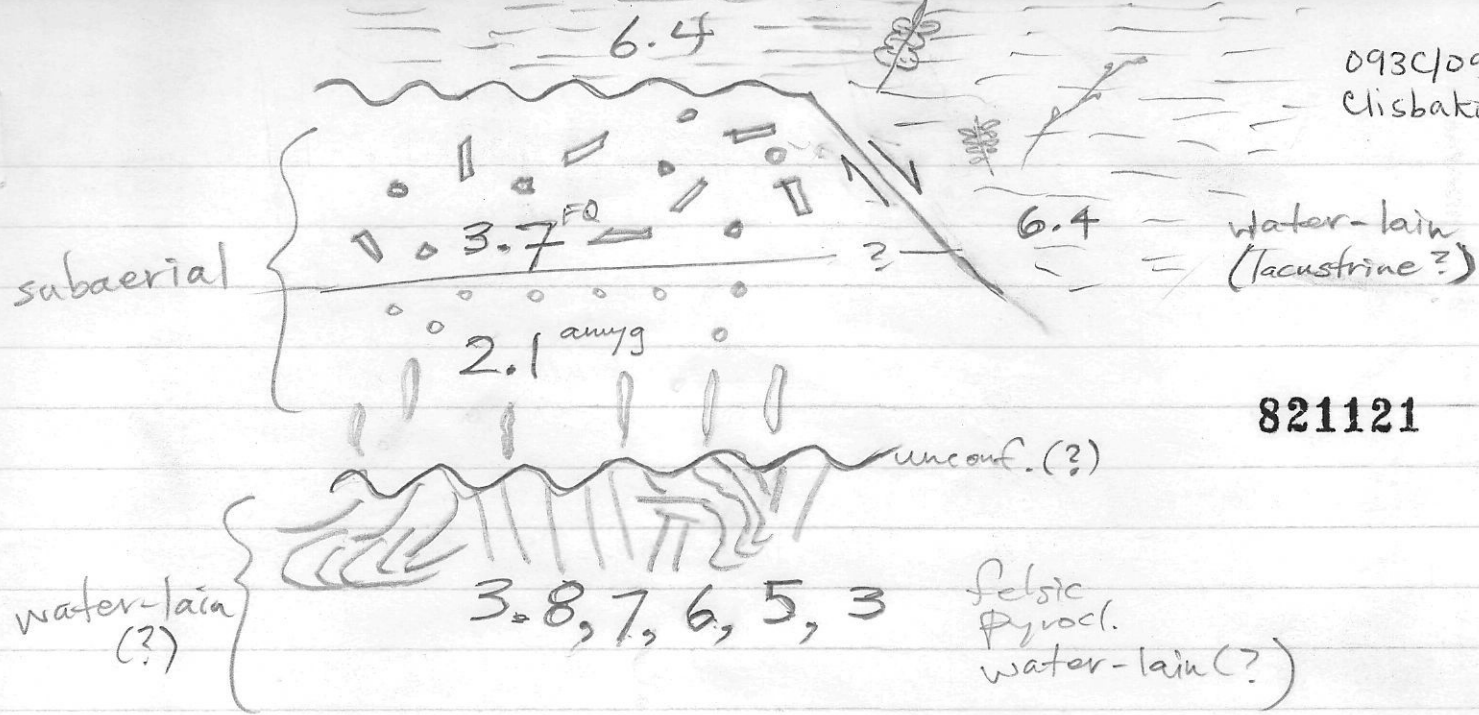 6.4
093C/09
Clisbak
3.7 FQ
?
6.4
water-lain
(lacustrine?)
subaerial
2.1 amyg
821121
unconf. (?)
water-lain
(?)
3.8, 7, 6, 5, 3
felsic
pyrocl.
water-lain (?)